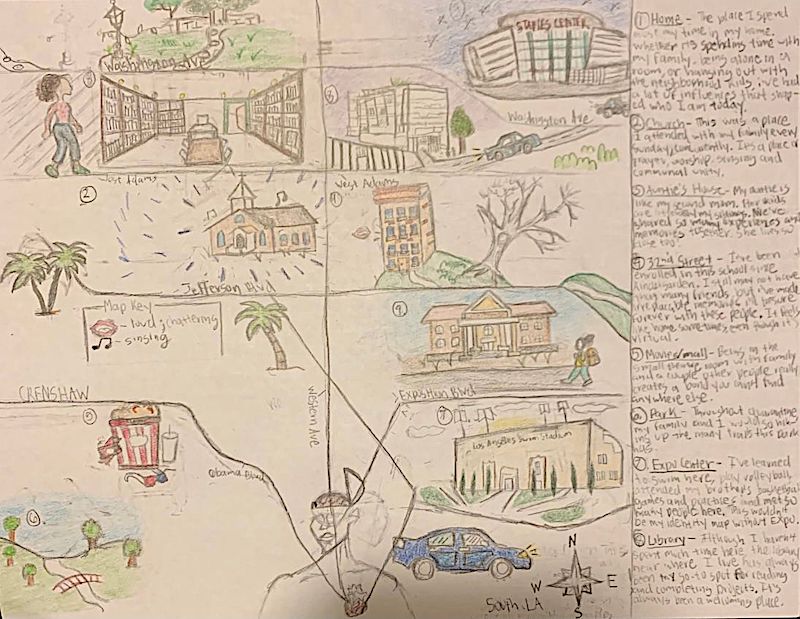 Washington Ave
STAPLES CENTER
Washington Ave
8
West Adams
West Adams
2
Jefferson Blvd
Map Key
- singing
9
CRENSHAW
Western Ave
Exposition Blvd
5
Obama Blvd
Los Angeles Swim Stadium
6
7
N
W E
S
South LA
① Home - The place I spend
most my time in my home.
whether its spending time with
my family, being alone in a
room, or hanging out with
the neighborhood kids. i've had
a lot of influences that shap-
ed who I am today.
② Church - This was a place
I attended with my family every
Sunday, Its a place of
prayer, worship, singing and
communal unity.
③ Auntie's House - My auntie is
like my second mom. Her kids
are my siblings. We've
shared so many experiences and
memories together. She lives so
close too.
④ 32nd Street - I've been
enrolled in this school since
Kindergarden. I may not have
many friends, but I've made
memories
forever with these people. It feels
like home sometimes even though it's
virtual.
⑤ Movies/mall - Being in the
small room with family
and a couple other people really
creates a bond you cant find
anywhere else.
⑥ Park - Throughout quarantine
my family and I would go hik-
ing up the many trails this park
has.
⑦ Expo Center - I've learned
to swim here, play volleyball,
attended my brother's basketball
games and practices and met so
many people here. This wouldn't
be my identity map without EXPO.
⑧ Library - Although I haven't
spent much time here, the library
near where I live has always
been my go-to spot for reading
and completing projects. It's
always been a welcoming place.